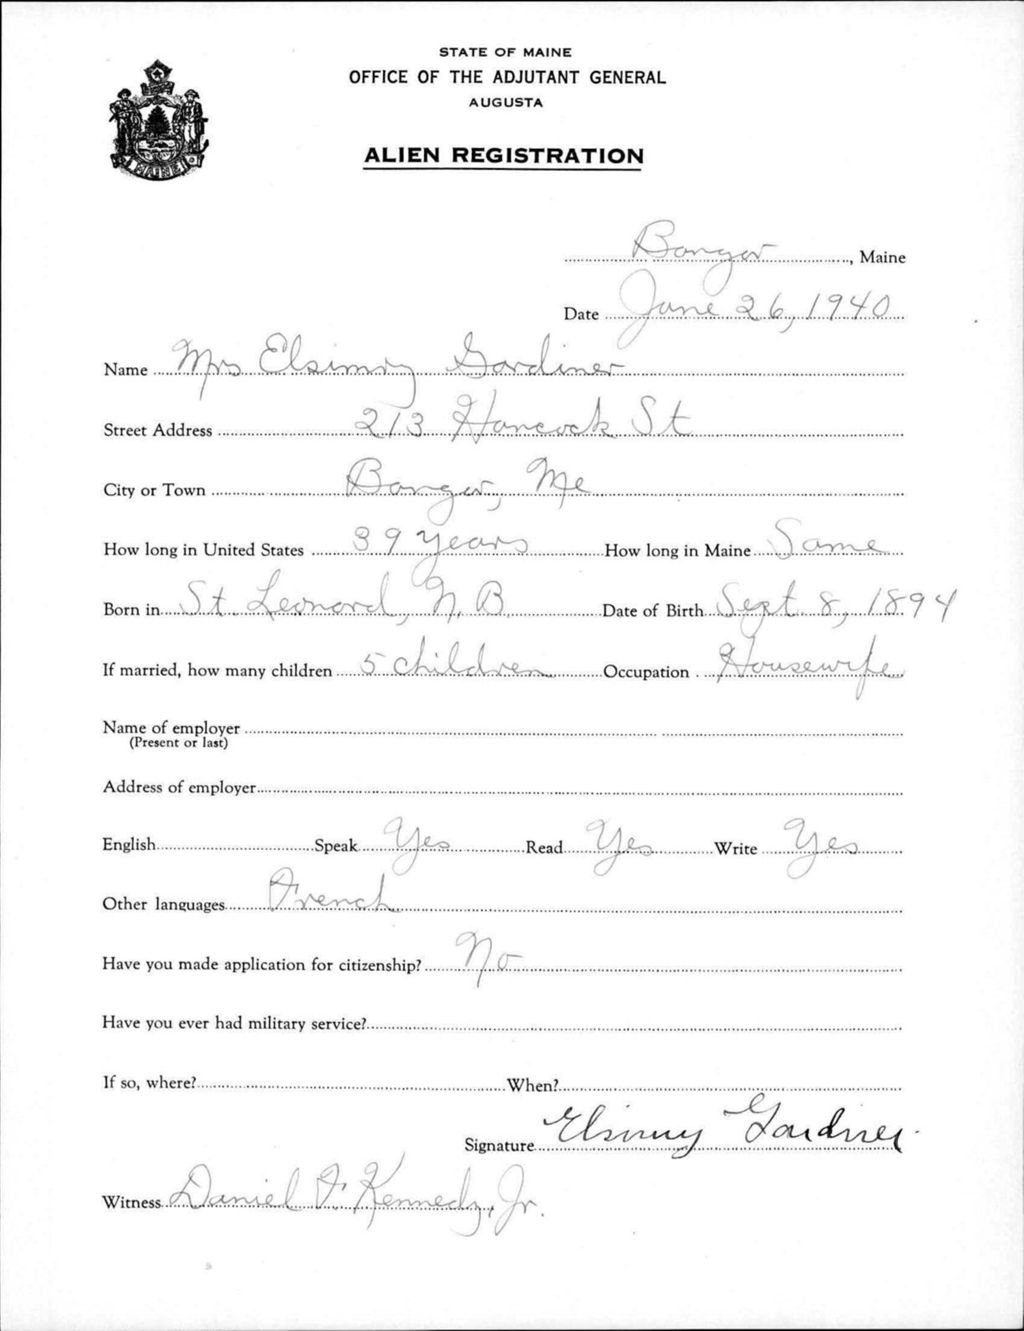 STATE OF MAINE
OFFICE OF THE ADJUTANT GENERAL
AUGUSTA
ALIEN REGISTRATION
MAINE
Bangor, Maine
Date June 26, 1940
Name Mrs Elsimry Gardiner
Street Address 213 Hancock St
City or Town Bangor, Me
How long in United States 39 years How long in Maine Same
Born in St. Leonard, N.B. Date of Birth Sept. 8, 1894
If married, how many children 5 children Occupation Housewife
Name of employer
(Present or last)
Address of employer
English Speak Yes Read Yes Write Yes
Other languages French
Have you made application for citizenship? No
Have you ever had military service?
If so, where? When?
Signature Gardner
Witness Daniel F. Kennedy, Jr.